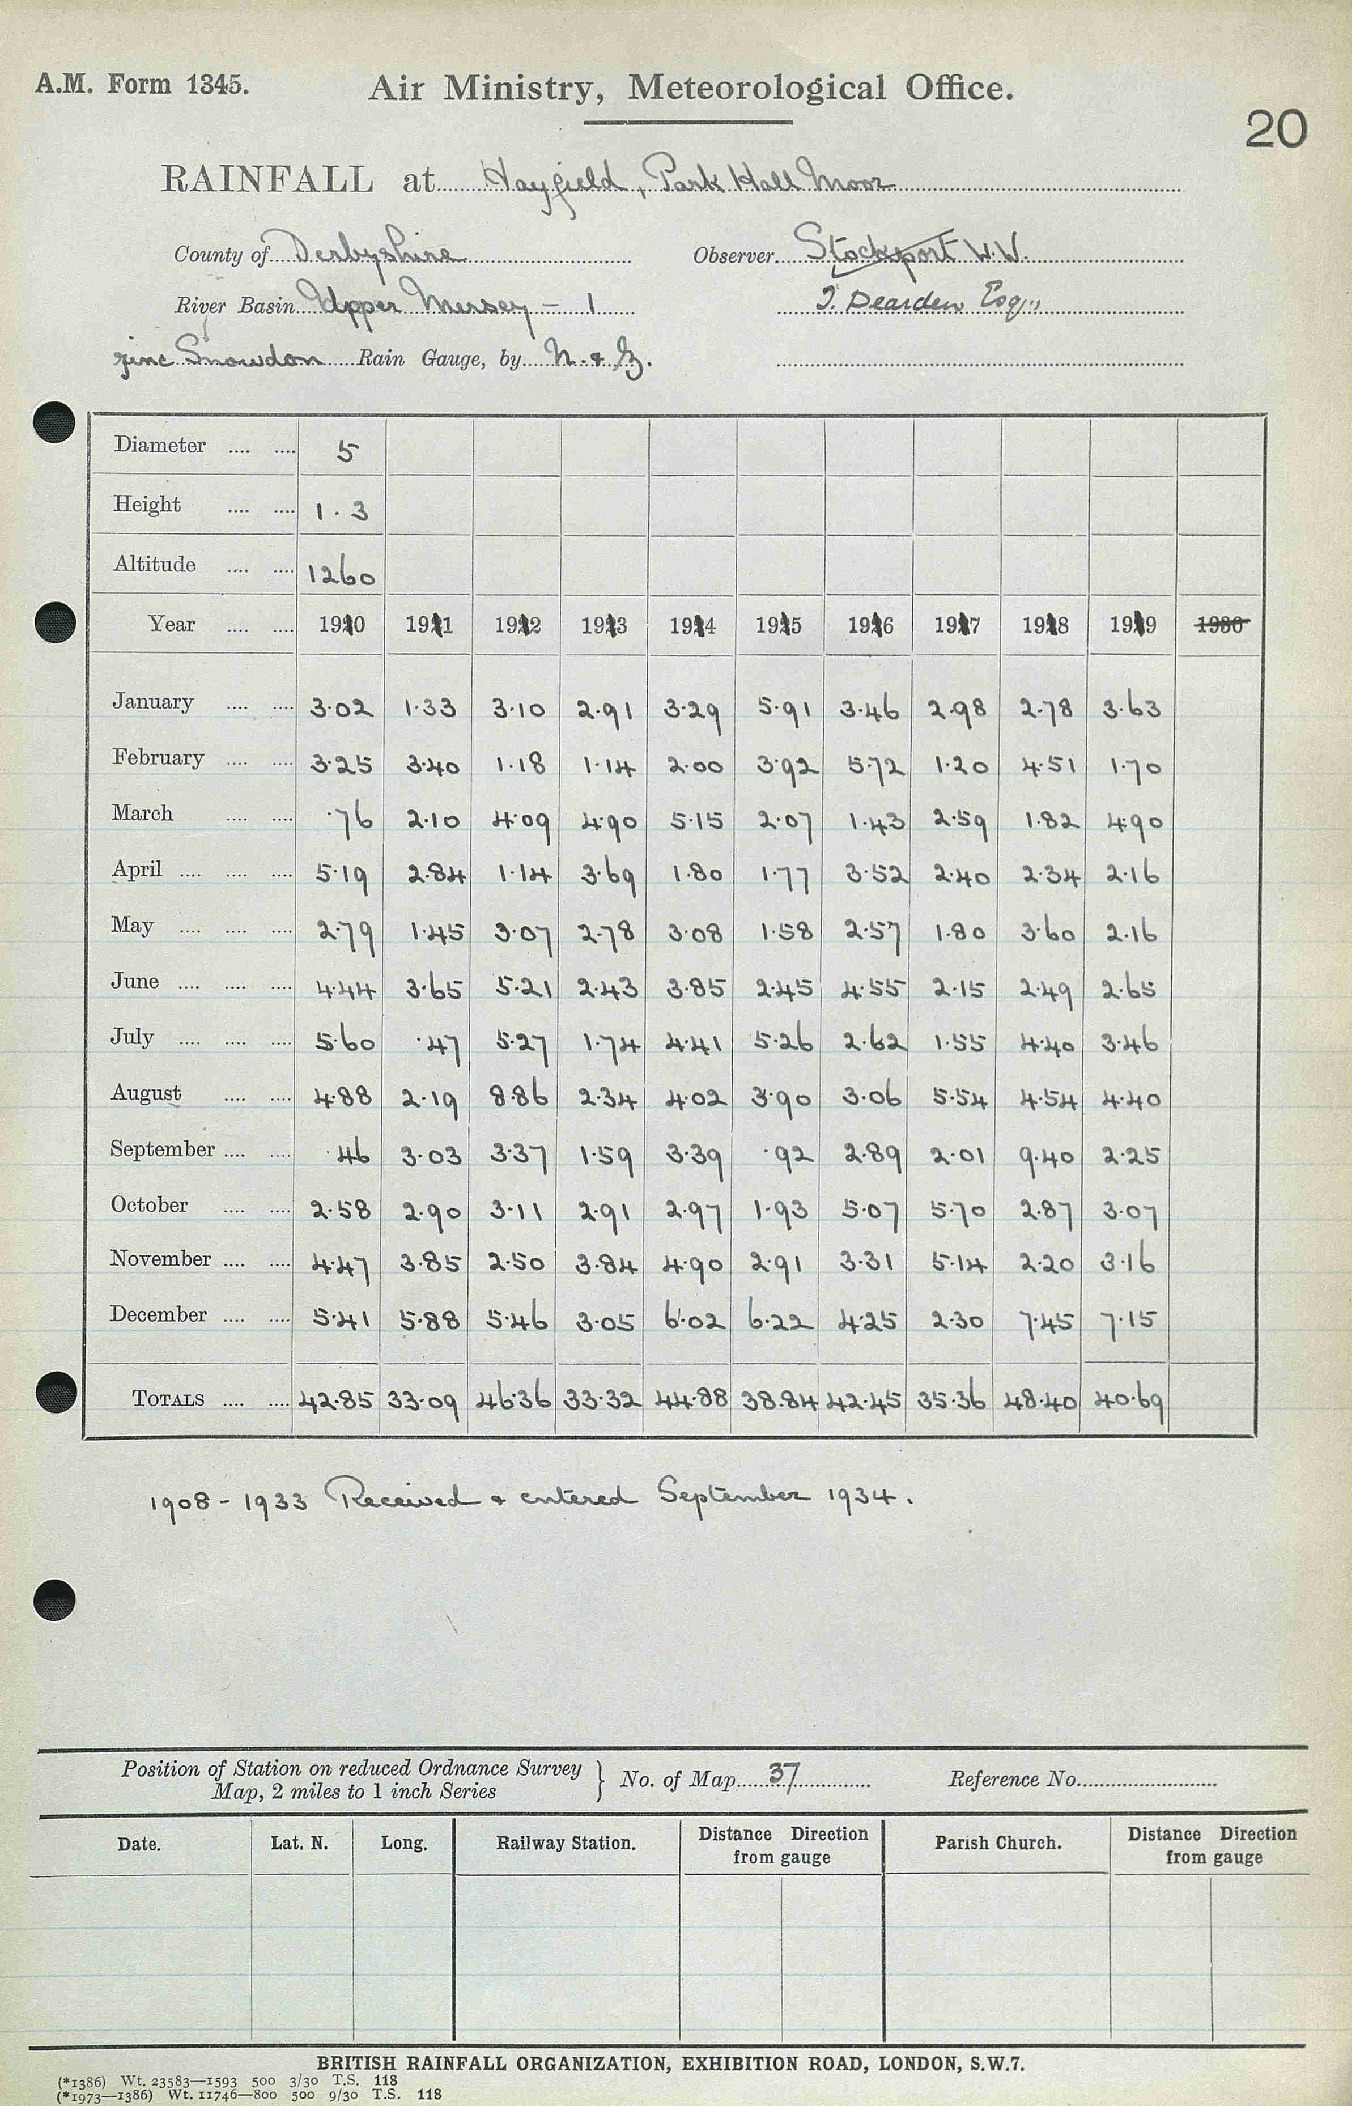 A.M. Form 1345.
Air Ministry, Meteorological Office.
20
RAINFALL at Hayfield, Park Hall Moor
County of Derbyshire Observer Stockport W.W.
River Basin Upper Mersey - 1 J. Dearden Esq.,
zinc Snowdon Rain Gauge, by N. & Z.
Diameter 5
Height 1.3
Altitude 1260
Year 1910 1911 1912 1913 1914 1915 1916 1917 1918 1919 1930
January 3.02 1.33 3.10 2.91 3.29 5.91 3.46 2.98 2.78 3.63
February 3.25 3.40 1.18 1.14 2.00 3.92 5.72 1.20 4.51 1.70
March .76 2.10 4.09 4.90 5.15 2.07 1.43 2.59 1.82 4.90
April 5.19 2.84 1.14 3.69 1.80 1.77 3.52 2.40 2.34 2.16
May 2.79 1.45 3.07 2.78 3.08 1.58 2.57 1.80 3.60 2.16
June 4.44 3.65 5.21 2.43 3.85 2.45 4.55 2.15 2.49 2.65
July 5.60 .47 5.27 1.74 4.41 5.26 2.62 1.55 4.40 3.46
August 4.88 2.19 8.86 2.34 4.02 3.90 3.06 5.54 4.54 4.40
September .46 3.03 3.37 1.59 3.39 .92 2.89 2.01 9.40 2.25
October 2.58 2.90 3.11 2.91 2.97 1.93 5.07 5.70 2.87 3.07
November 4.47 3.85 2.50 3.84 4.90 2.91 3.31 5.14 2.20 3.16
December 5.41 5.88 5.46 3.05 6.02 6.22 4.25 2.30 7.45 7.15
TOTALS 42.85 33.09 46.36 33.32 44.88 38.84 42.45 35.36 48.40 40.69
1908 - 1933 Received & entered September 1934.
Position of Station on reduced Ordnance Survey
Map, 2 miles to 1 inch Series
No. of Map 37 Reference No.
Date. Lat. N. Long. Railway Station. Distance from gauge Direction Parish Church. Distance from gauge Direction
BRITISH RAINFALL ORGANIZATION, EXHIBITION ROAD, LONDON, S.W.7.
(*1386) Wt. 23583—1593 500 3/30 T.S. 118
(*1973—1386) Wt. 11746—800 500 9/30 T.S. 118